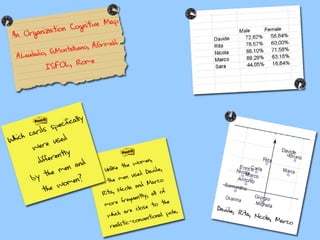 An Organization Cognitive Map
A.Lualdio, G.Montalbano, A.Grimaldi
ISFOL, Rome
Male Female
Davide 72,62% 58,84%
Rita 78,57% 60,00%
Nicola 88,10% 71,59%
Marco 89,29% 63,10%
Sara 44,05% 16,84%
Which cards specifically
were used
differently
by the men and
the women?
Unlike the women,
the men used Davide,
Rita, Nicola and Marco
more frequently, all of
which are close to the
realistic-conventional pole.
Davide
Bruno
Rita
Carla
Maria
Marco
Antonio
Samantha
Gianna
Giorgio
Michela
Davide, Rita, Nicola, Marco